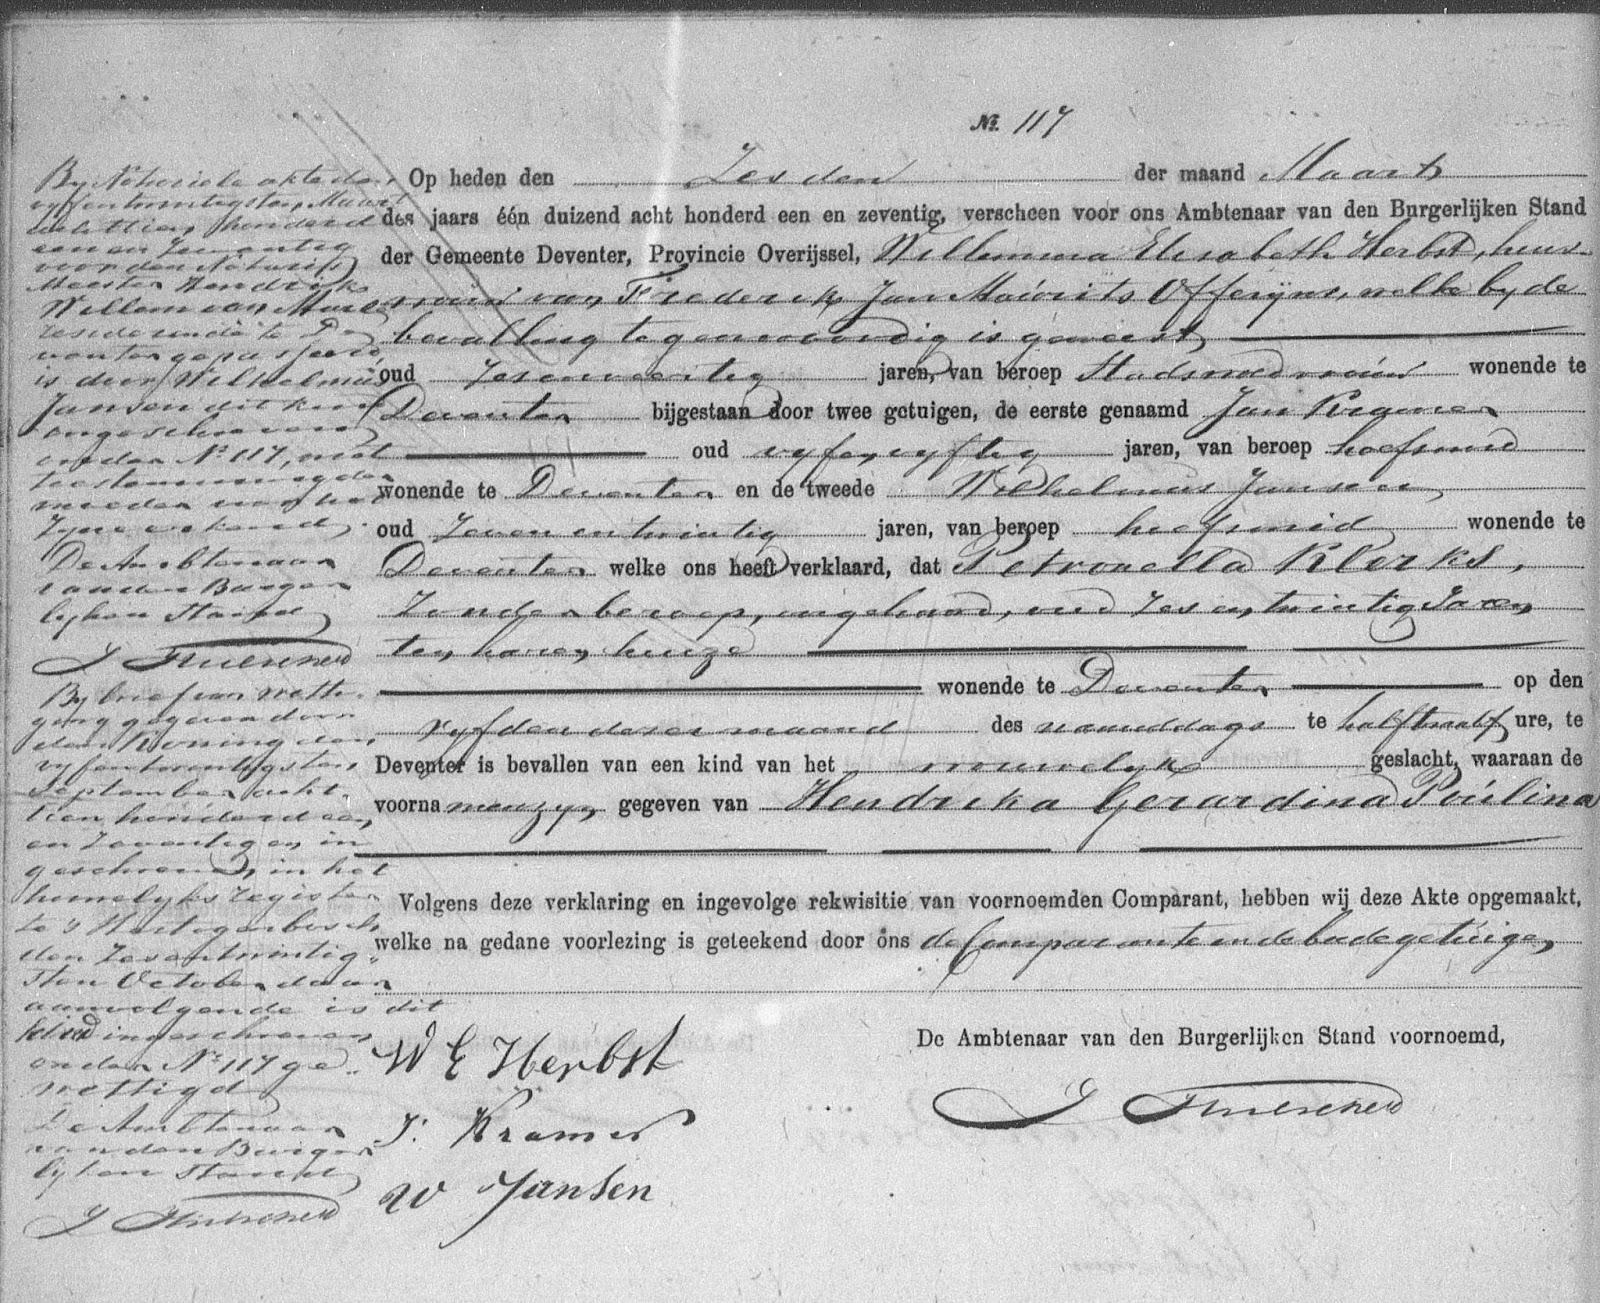 No. 117
Op heden den Zesden der maand Maart
des jaars één duizend acht honderd een en zeventig, verscheen voor ons Ambtenaar van den Burgerlijken Stand
der Gemeente Deventer, Provincie Overijssel, Willemina Elisabeth Herbst, huis-
vrouw van Frederik Jan Mourits Offerijns, welke by de
bevalling tegenwoordig is geweest
oud zesenveertig jaren, van beroep Stadsvroedvrouw wonende te
Deventer bijgestaan door twee getuigen, de eerste genaamd Jan Kramer
oud vyfenvyftig jaren, van beroep hoefsmid
wonende te Deventer en de tweede Wilhelmus Jansen
oud Zevenentwintig jaren, van beroep hoefsmid wonende te
Deventer welke ons heeft verklaard, dat Petronella Klerks,
Zonder beroep, ongehuwd, oud Zesentwintig Jaren
ten haren huize
wonende te Deventer op den
vyfden dezer maand des namiddags te halftwalf ure, te
Deventer is bevallen van een kind van het vrouwelyk geslacht, waaraan de
voornamen zyn gegeven van Hendrika Gerardina Paulina
Volgens deze verklaring en ingevolge rekwisitie van voornoemden Comparant, hebben wij deze Akte opgemaakt,
welke na gedane voorlezing is geteekend door ons de Comparante en de beide getuigen
De Ambtenaar van den Burgerlijken Stand voornoemd,
W E Herbst
J. Kramer
W Jansen
By Notariele akte den
vyfentwintigsten Maart
achttien honderd
een en Zeventig
voor den Notaris
Meester Hendrik
Willem van Marle
residerende te De
venter gepasseerd,
is door Wilhelmus
Jansen dit kind
ingeschreven
onder No. 117, met
toestemming der
moeder voor het
Zyne erkend.
De Ambtenaar
van den Burger
lyken Stand
By brief van wetti-
ging gegeven door
den Koning den
vyfentwintigsten
September acht
tien honderd een
en Zeventig en in
geschreven in het
huwelyks register
te 's Hertogenbosch
den Zesentwintig
sten October daar
aanvolgende is dit
kind ingeschreven
onder No. 117 ge
wettigd
De Ambtenaar
van den Burger
lyken Stand